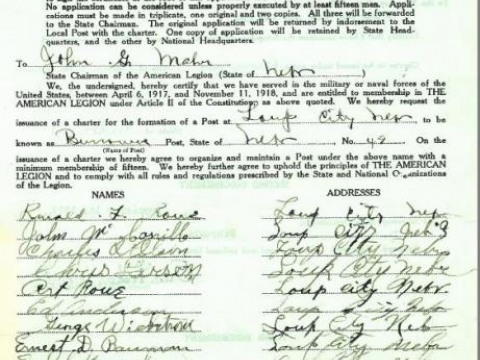 No application can be considered unless properly executed by at least fifteen men. Appli-
cations must be made in triplicate, one original and two copies. All three will be forwarded
to the State Chairman. The original application will be returned by indorsement to the
Local Post with the charter. One copy of application will be retained by State Head-
quarters, and the other by National Headquarters.
To John G. Maher
State Chairman of the American Legion (State of Nebr)
We, the undersigned, hereby certify that we have served in the military or naval forces of the
United States, between April 6, 1917, and November 11, 1918, and are entitled to membership in THE
AMERICAN LEGION under Article II of the Constitution as above quoted. We hereby request the
issuance of a charter for the formation of a Post at Loup City Nebr to be
known as Post, State of Nebr No. 48 On the
(Name of Post)
issuance of a charter we hereby agree to organize and maintain a Post under the above name with a
minimum membership of fifteen. We hereby further agree to uphold the principles of THE AMERICAN
LEGION and to comply with all rules and regulations prescribed by the State and National Organizations
of the Legion.
NAMES ADDRESSES
Loup City Nebr
John Loup City Nebr
Charles Loup City Nebr
Chris Loup City Nebr
Loup City Nebr
Ed Anderson Loup City Nebr
Loup City Nebr
Ernest D. Loup City Nebr